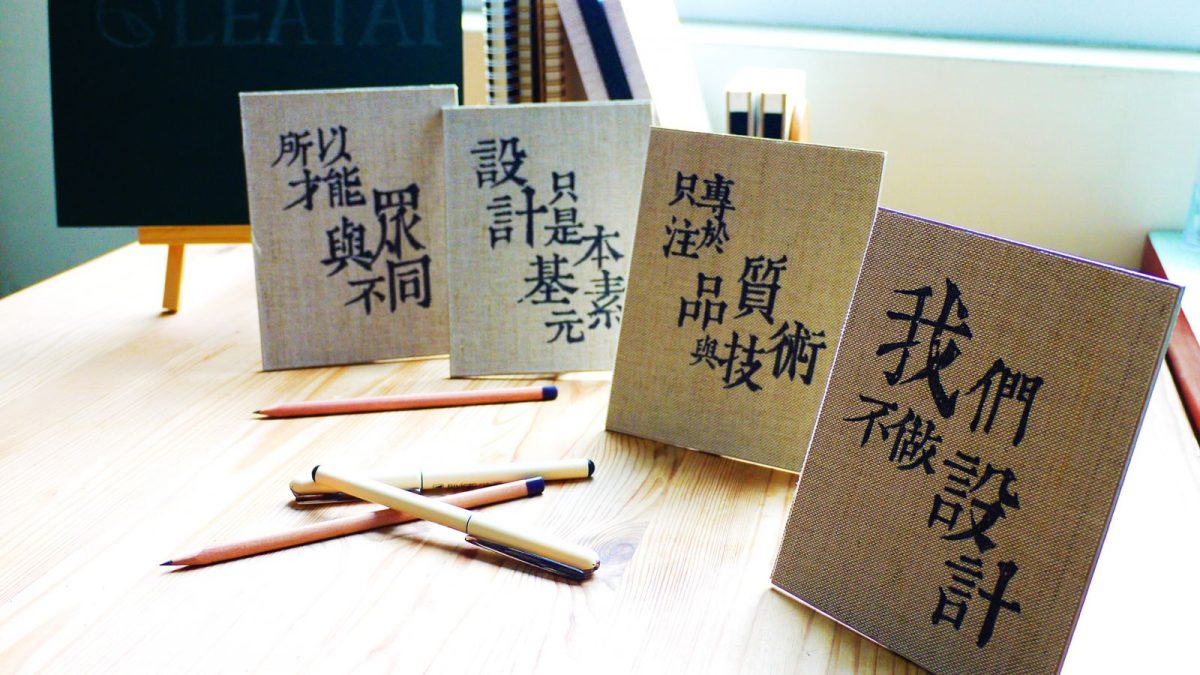 我們不做設計
只專注於品質與技術
設計只是基本元素
所以才能與眾不同